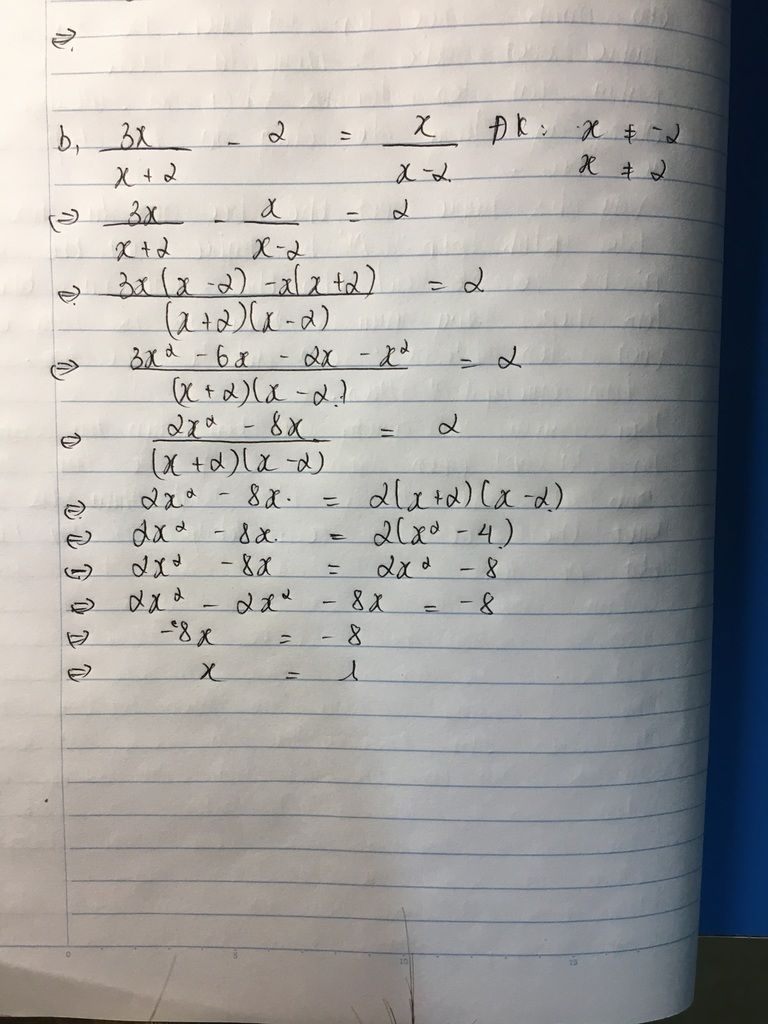 ⇔
b, 3x/(x + 2) - 2 = x/(x - 2) ĐK: x ≠ -2
x ≠ 2
⇔ 3x/(x + 2) - x/(x - 2) = 2
⇔ (3x(x - 2) - x(x + 2))/((x + 2)(x - 2)) = 2
⇔ (3x² - 6x - 2x - x²)/((x + 2)(x - 2)) = 2
⇔ (2x² - 8x)/((x + 2)(x - 2)) = 2
⇔ 2x² - 8x = 2(x + 2)(x - 2)
⇔ 2x² - 8x = 2(x² - 4)
⇔ 2x² - 8x = 2x² - 8
⇔ 2x² - 2x² - 8x = -8
⇔ -8x = -8
⇔ x = 1
0 5 10 15